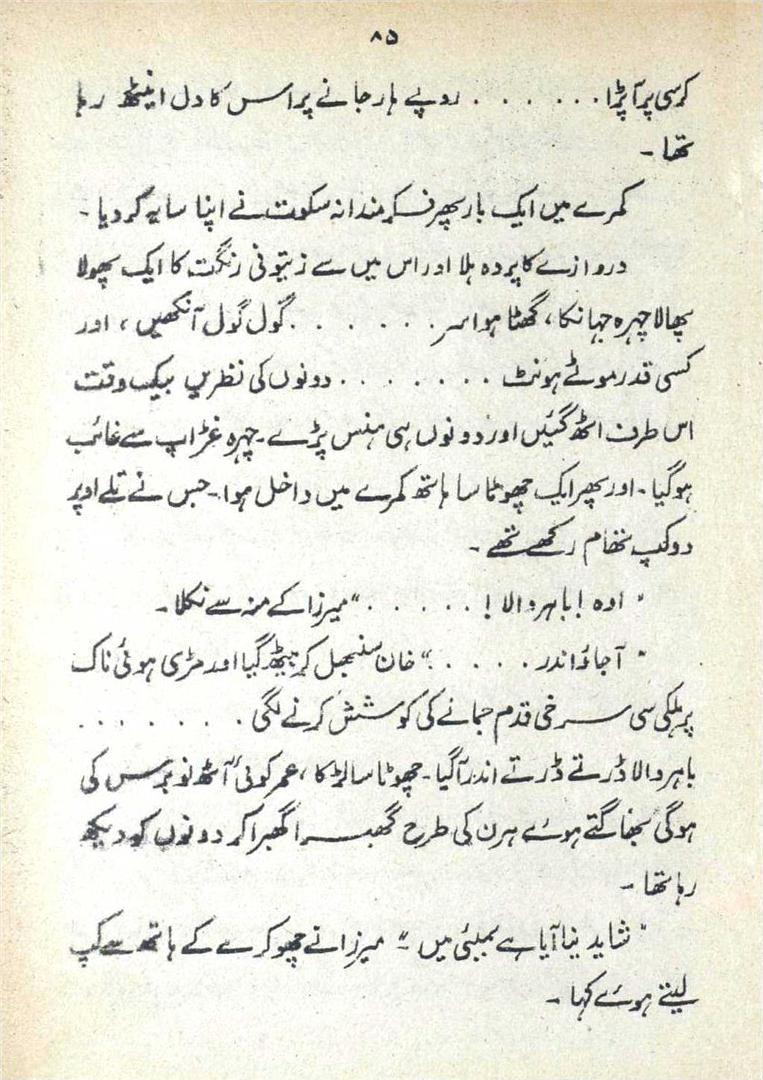 ۸۵
کرسی پر آ پڑا ۔ ۔ ۔ ۔ ۔ ۔ روپے ہار جانے پر اس کا دل اینٹھ رہا
تھا ۔
کمرے میں ایک بار پھر فکرمندانہ سکوت نے اپنا سایہ کر دیا ۔
دروازے کا پردہ ہلا اور اس میں سے زیتونی رنگت کا ایک پھولا
پھالا چہرہ جھانکا ، گھٹا ہوا سر ۔ ۔ ۔ ۔ ۔ ۔ گول گول آنکھیں ، اور
کسی قدر موٹے ہونٹ ۔ ۔ ۔ ۔ ۔ ۔ ۔ دونوں کی نظریں بیک وقت
اس طرف اٹھ گئیں اور دونوں ہی ہنس پڑے ۔ چہرہ غڑاپ سے غائب
ہو گیا ۔ اور پھر ایک چھوٹا سا ہاتھ کمرے میں داخل ہوا ۔ جس نے تلے اوپر
دو کپ تھام رکھے تھے ۔
" اوہ ! باہر والا ! ۔ ۔ ۔ ۔ ۔ " میرزا کے منہ سے نکلا ۔
" آ جاؤ اندر ۔ ۔ ۔ ۔ ۔ " خان سنبھل کر بیٹھ گیا اور مڑی ہوئی ناک
پر ہلکی سی سرخی قدم جمانے کی کوشش کرنے لگی ۔ ۔ ۔ ۔ ۔ ۔ ۔
باہر والا ڈرتے ڈرتے اندر آ گیا ۔ چھوٹا سا لڑکا ، عمر کوئی آٹھ نو برس کی
ہو گی بھاگتے ہوئے ہرن کی طرح گھبرا گھبرا کر دونوں کو دیکھ
رہا تھا ۔
" شاید نیا آیا ہے بمبئی میں ۔" میرزا نے چھوکرے کے ہاتھ سے کپ
لیتے ہوئے کہا ۔